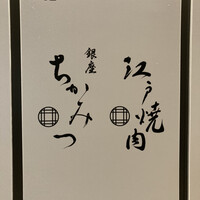 江戸焼肉
銀座
ちかみつ